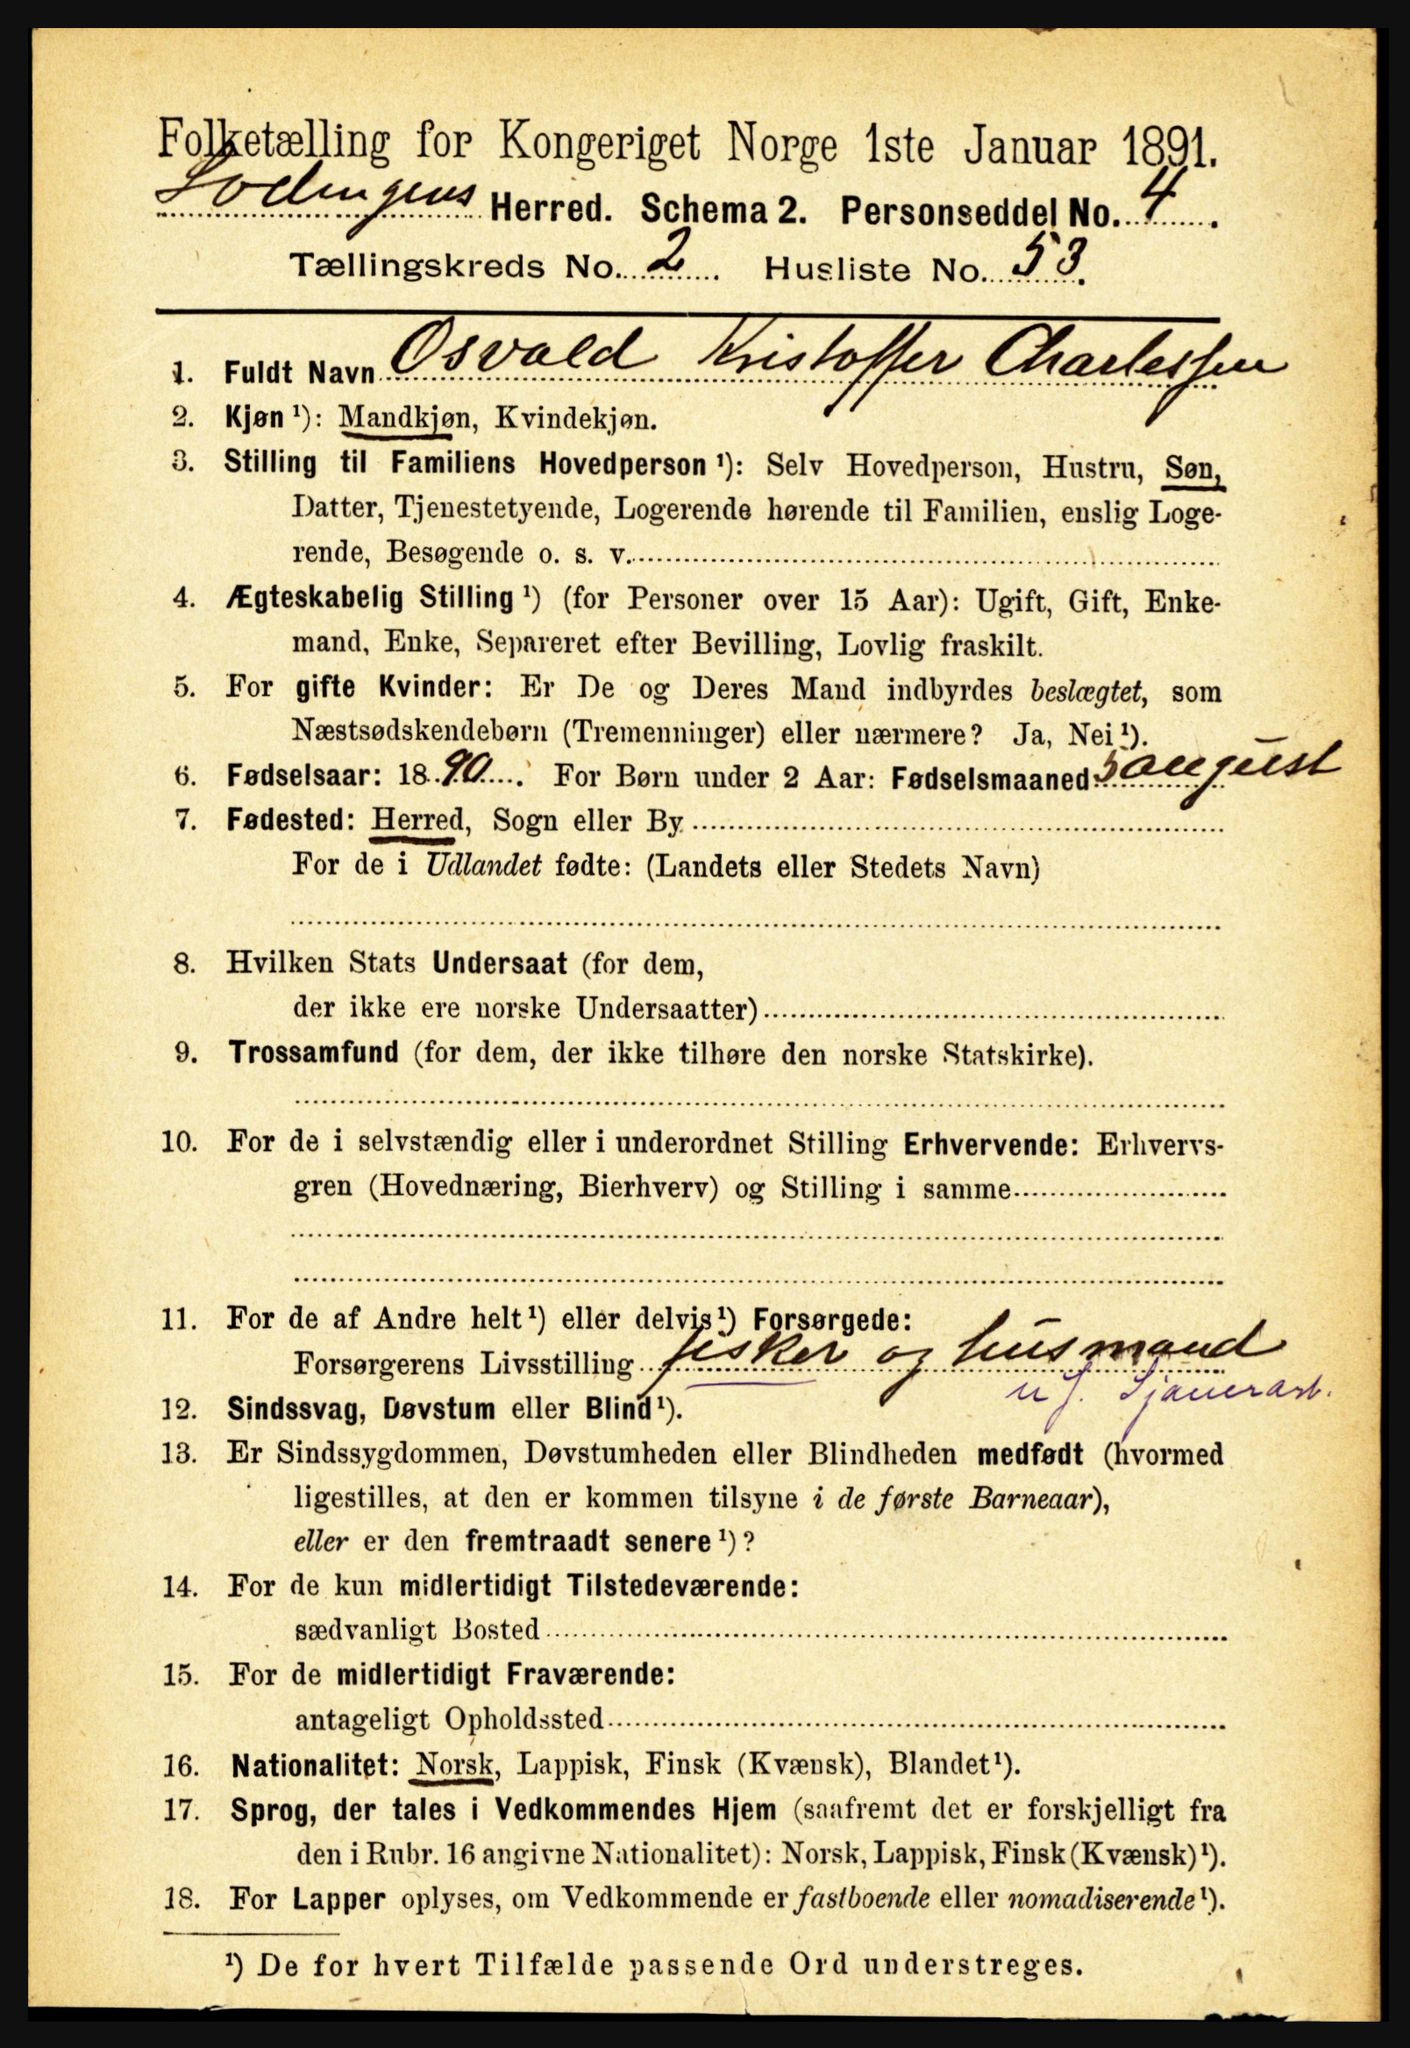 Folketælling for Kongeriget Norge 1ste Januar 1891.
Lodingens Herred. Schema 2. Personseddel No. 4.
Tællingskreds No. 2. Husliste No. 53.
1. Fuldt Navn Osvald Kristoffer Charlessen
2. Kjøn ¹): Mandkjøn, Kvindekjøn.
3. Stilling til Familiens Hovedperson ¹): Selv Hovedperson, Hustru, Søn,
Datter, Tjenestetyende, Logerende hørende til Familien, enslig Loge-
rende, Besøgende o. s. v.
4. Ægteskabelig Stilling ¹) (for Personer over 15 Aar): Ugift, Gift, Enke-
mand, Enke, Separeret efter Bevilling, Lovlig fraskilt.
5. For gifte Kvinder: Er De og Deres Mand indbyrdes beslægtet, som
Næstsødskendebørn (Tremenninger) eller nærmere? Ja, Nei ¹).
6. Fødselsaar: 1890. For Børn under 2 Aar: Fødselsmaaned 5 august
7. Fødested: Herred, Sogn eller By
For de i Udlandet fødte: (Landets eller Stedets Navn)
8. Hvilken Stats Undersaat (for dem,
der ikke ere norske Undersaatter)
9. Trossamfund (for dem, der ikke tilhøre den norske Statskirke).
10. For de i selvstændig eller i underordnet Stilling Erhvervende: Erhvervs-
gren (Hovednæring, Bierhverv) og Stilling i samme
11. For de af Andre helt ¹) eller delvis ¹) Forsørgede:
Forsørgerens Livsstilling fisker og husmand
u J.
12. Sindssvag, Døvstum eller Blind ¹).
13. Er Sindssygdommen, Døvstumheden eller Blindheden medfødt (hvormed
ligestilles, at den er kommen tilsyne i de første Barneaar),
eller er den fremtraadt senere ¹)?
14. For de kun midlertidigt Tilstedeværende:
sædvanligt Bosted
15. For de midlertidigt Fraværende:
antageligt Opholdssted
16. Nationalitet: Norsk, Lappisk, Finsk (Kvænsk), Blandet ¹).
17. Sprog, der tales i Vedkommendes Hjem (saafremt det er forskjelligt fra
den i Rubr. 16 angivne Nationalitet): Norsk, Lappisk, Finsk (Kvænsk) ¹).
18. For Lapper oplyses, om Vedkommende er fastboende eller nomadiserende ¹).
¹) De for hvert Tilfælde passende Ord understreges.